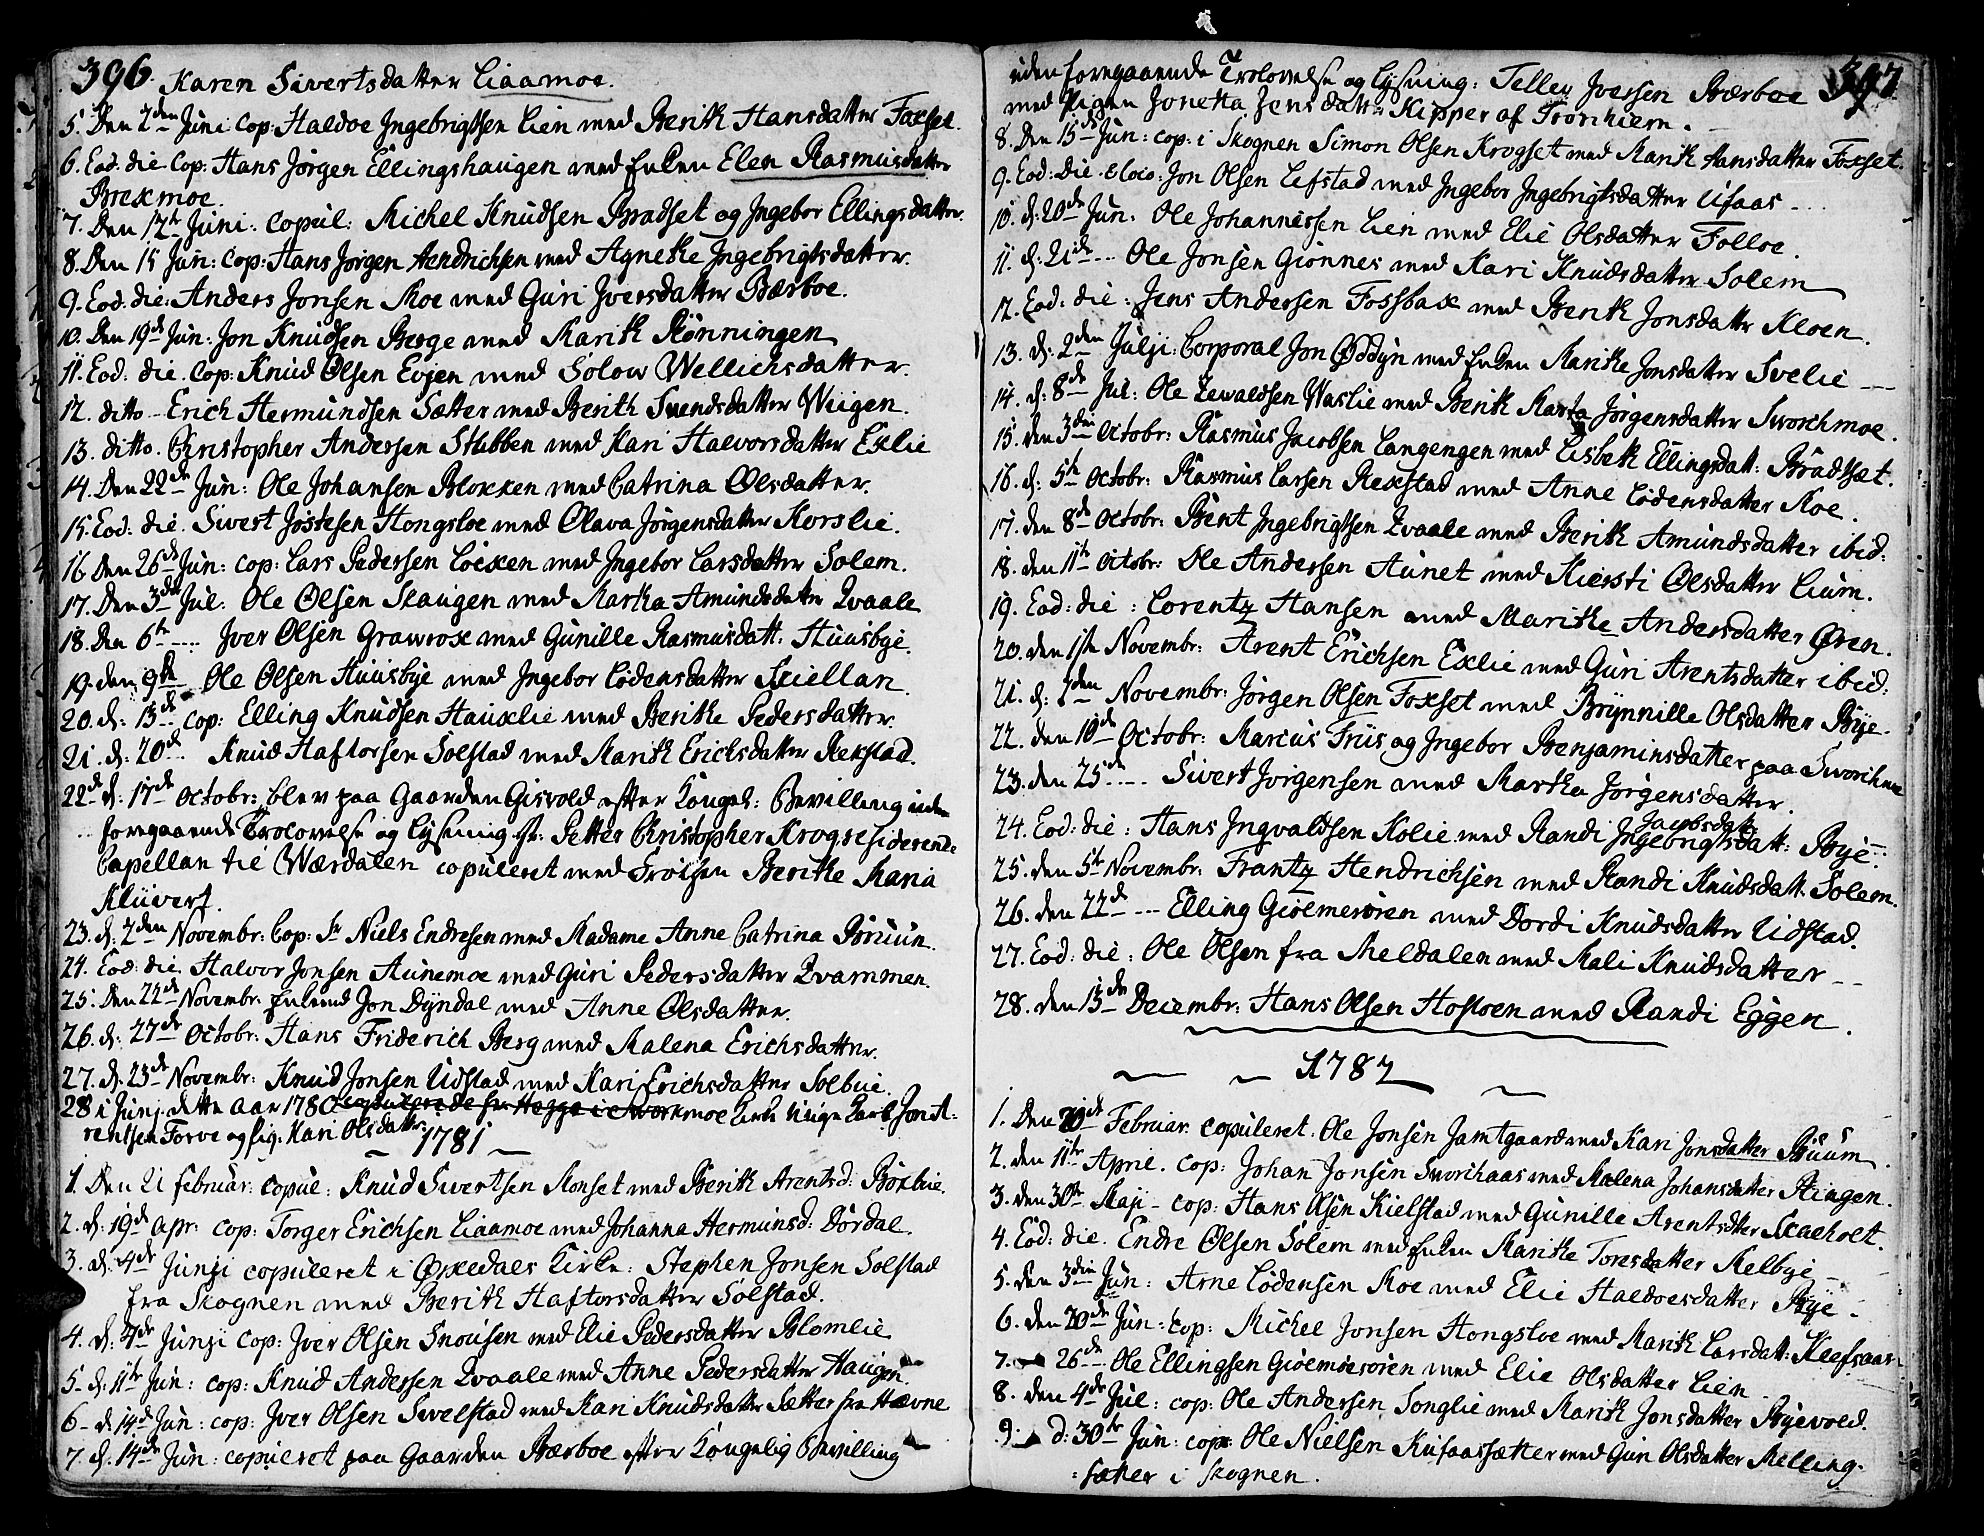 396. Karen Sivertsdatter Liaamoe.
5. Den 2den Juni Cop: Haldoe Ingebrigtsen Lien med Berith Hansdatter Foxset.
6. Eod. die Cop: Hans Jörgen Ellingshaugen med Enken Elen Rasmusdatter
Brexmoe.
7. Den 12te Juni. Copul: Michel Knudsen Bradset og Ingebor Ellingsdatter.
8. Den 15 Jun: Cop: Hans Jörgen Hendrichsen med Agnethe Ingebrigtsdatter.
9. Eod. die: Anders Jonsen Moe med Guri Iversdatter Bærboe.
10. Den 19de Jun: Jon Knudsen Berge med Marith Rönningen
11. Eod. die. Cop: Knud Olsen Evjen med Solow Wellichsdatter.
12. ditto – Erich Hermundsen Sætter med Berith Svendsdatter Wiigen.
13. ditto. Christopher Andersen Stubben med Kari Halvorsdatter Exlie
14. Den 22de Jun: Ole Johansen Bloxken med Catrina Olsdatter.
15. Eod. die. Sivert Jostesen Hongsloe med Olava Jörgensdatter Korslie.
16. Den 26de Jun: cop: Lars Pedersen Loexen med Ingebor Larsdatter Solem.
17. Den 3die Jul: Ole Olsen Skaugen med Martha Amundsdatter Qvaale
18. Den 6te .... Iver Olsen Grawrox med Gunille Rasmusdatt: Huusbye.
19. den 9de Ole Olsen Huusbye med Ingebor Lodensdatter Skiellan
20. d: 13de Cop: Elling Knudsen Hauxlie med Berithe Pedersdatter.
21. d: 20de .. Knud Haftorsen Solstad med Marith Erichsdatter Rekstad.
22de d: 17de Octobr: blev paa Gaarden Gisvold efter Kongel: Bevilling uden
foregaaende Trolovelse og Lysning Hr: Petter Christopher Krog residerende
Capellan til Wærdalen copuleret med Fröken Berithe Maria
Klüver.
23. d: 2den Novembr: Cop: Sr Niels Endresen med Madame Anne Catrina Bruun.
24. Eod: die. Halvor Jonsen Aunemoe med Guri Pedersdatter Qvammen.
25. Den 22de Novembr: Enkemd Jon Dyndal med Anne Olsdatter.
26. d: 27de Octobr: Hans Friderich Berg med Malena Erichsdatter.
27. d: 23de Novembr: Knud Jonsen Udstad med Kari Erichsdatter Solbue.
28 i Junj dette Aar 1780 Kirke Unge Karl Jon A-
rentsen Forve og Pig: Kari Olsdatter.
1781
1. Den 21 Februar: copul: Knud Sivertsen Monset med Berith Arentsd: Böxbie.
2. d: 19de Apr: cop: Torger Erichsen Liaamoe med Johanna Hermunsd: Dördal.
3. d: 4de Junji copuleret i Orkedals Kirke: Stephen Jonsen Solstad
fra Skognen med Berith Haftorsdatter Solstad.
4. d: 4de Junji Cop: Iver Olsen Snousen med Elie Pedersdatter Blomlie
5– d: 11te Jun: cop: Knud Andersen Qvaale med Anne Pedersdatter Haugen.
6– d: 14de Jun: cop: Iver Olsen Swelstad med Kari Knudsdatter Sætter fra Hævne
7. d: 14de Jun: copuleret paa Gaarden Bærboe efter Kongelig Bevilling
397
uden foregaaende Trolovelse og Lysning: Tellev Iversen Bærboe
med Pigen Jonetta Jensdatt: Kipper af Tronhiem.
8. Den 15de Jun: cop: i Skognen Simon Olsen Krogset med Marith Hansdatter Foxset.
9. Eod: die. & loco: Jon Olsen Lefstad med Ingebor Ingebrigtsdatter Ufaas –
10. d: 20de Jun: Ole Johannessen Lien med Elie Olsdatter Folloe.
11. d: 21de ... Ole Jonsen Gionnes med Kari Knudsdatter Solem
12. Eod: die: Jens Andersen Fossbax med Berith Jonsdatter Kloen.
13. d: 2den Julji: Corporal Jon Oddyn med Enken Marithe Jonsdatter Svelie ––
14. d: 8de Jul: Ole Zewaldsen Waslie med Berith Marta Jörgensdatter Sworchmoe.
15. den 3die Octobr: Rasmus Jacobsen Langengen med Lisbeth Ellingsdatt: Bradset.
16. d: 5te Octobr: Rasmus Larsen Rexstad med Anne Lodensdatter Moe.
17. den 8de Octobr: Bent Ingebrigtsen Qvaale med Berith Amundsdatter ibid:
18. den 11te Octobr: Ole Andersen Aunet med Kiersti Olsdatter Lium.
19. Eod: die: Lorentz Hansen med Marithe Andersdatter Ören.
20. den 1ste Novembr: Arent Erichsen Exlie med Guri Arentsdatter ibid:
21. d: 2den Novembr: Jörgen Olsen Foxset med Brynnille Olsdatter Bye.
22. den 10de Octobr: Marcus Friis og Ingebor Benjaminsdatter paa Sworchmoe
23. den 25de .... Sivert Jörgensen med Martha Jörgensdatter.
24. Eod: die: Hans Ingvaldsen Kolie med Randi Ingebrigtsdatt: Jacobsdatt. Bye–
25. den 5te Novembr: Frantz Hendrichsen med Randi Knudsdatt: Solem.
26. den 22de ... Elling Gioemesören med Dordi Knudsdatter Udstad.
27. Eod: die: Ole Olsen fra Meldalen med Mali Knudsdatter ––
28. den 13de Decembr: Hans Olsen Hostoen med Randi Eggen.
1782
1. Den 20de Februar. copuleret: Ole Jonsen Jamtgaard med Kari Jonsdatter Buum.
2. den 11te April. cop: Johan Jonsen Sworchaas med Malena Johansdatter Ringen.
3. den 30te Maji – cop: Hans Olsen Kielstad med Gunille Arentsdtter Skaeholt.
4. Eod: die. Endre Olsen Solem med Enken Marithe Toresdatter Melbye –
5. den 3die Jun: Arne Lodensen Moe med Elie Haldoesdatter Bye –
6. den 20de Jun: cop: Michel Jonsen Hongsloe med Marith Larsdatt: Kleefsaas
7. 26de .. Ole Ellingsen Gioemesören med Elie Olsdatter Lien
8. den 4de Jul: cop: Ole Andersen Songlie med Marith Jonsdatter Byevold.
9. d: 30te Jun: cop: Ole Nielsen Kufaassætter med Guri Olsdatter Melling-
sæter i Skognen.